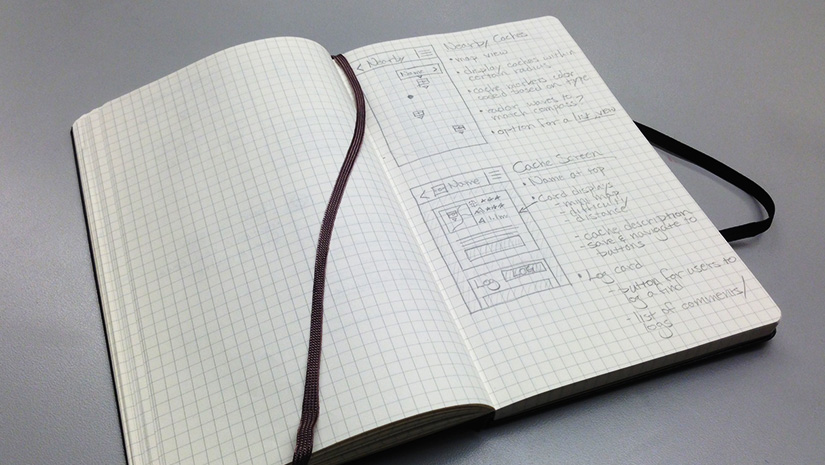 < Nearby
Name >
Nearby Caches
• map view
• display caches within
certain radius
• cache markers color
coded based on type
• radar waves to
match compass?
• option for a list view
< Name
Log LOG
Cache Screen
• Name at top
• Card displays
- mini map
- difficulty
- distance
- cache description
- save & navigate to
buttons
• Log card
- button for users to
log a find
- list of comments/
logs